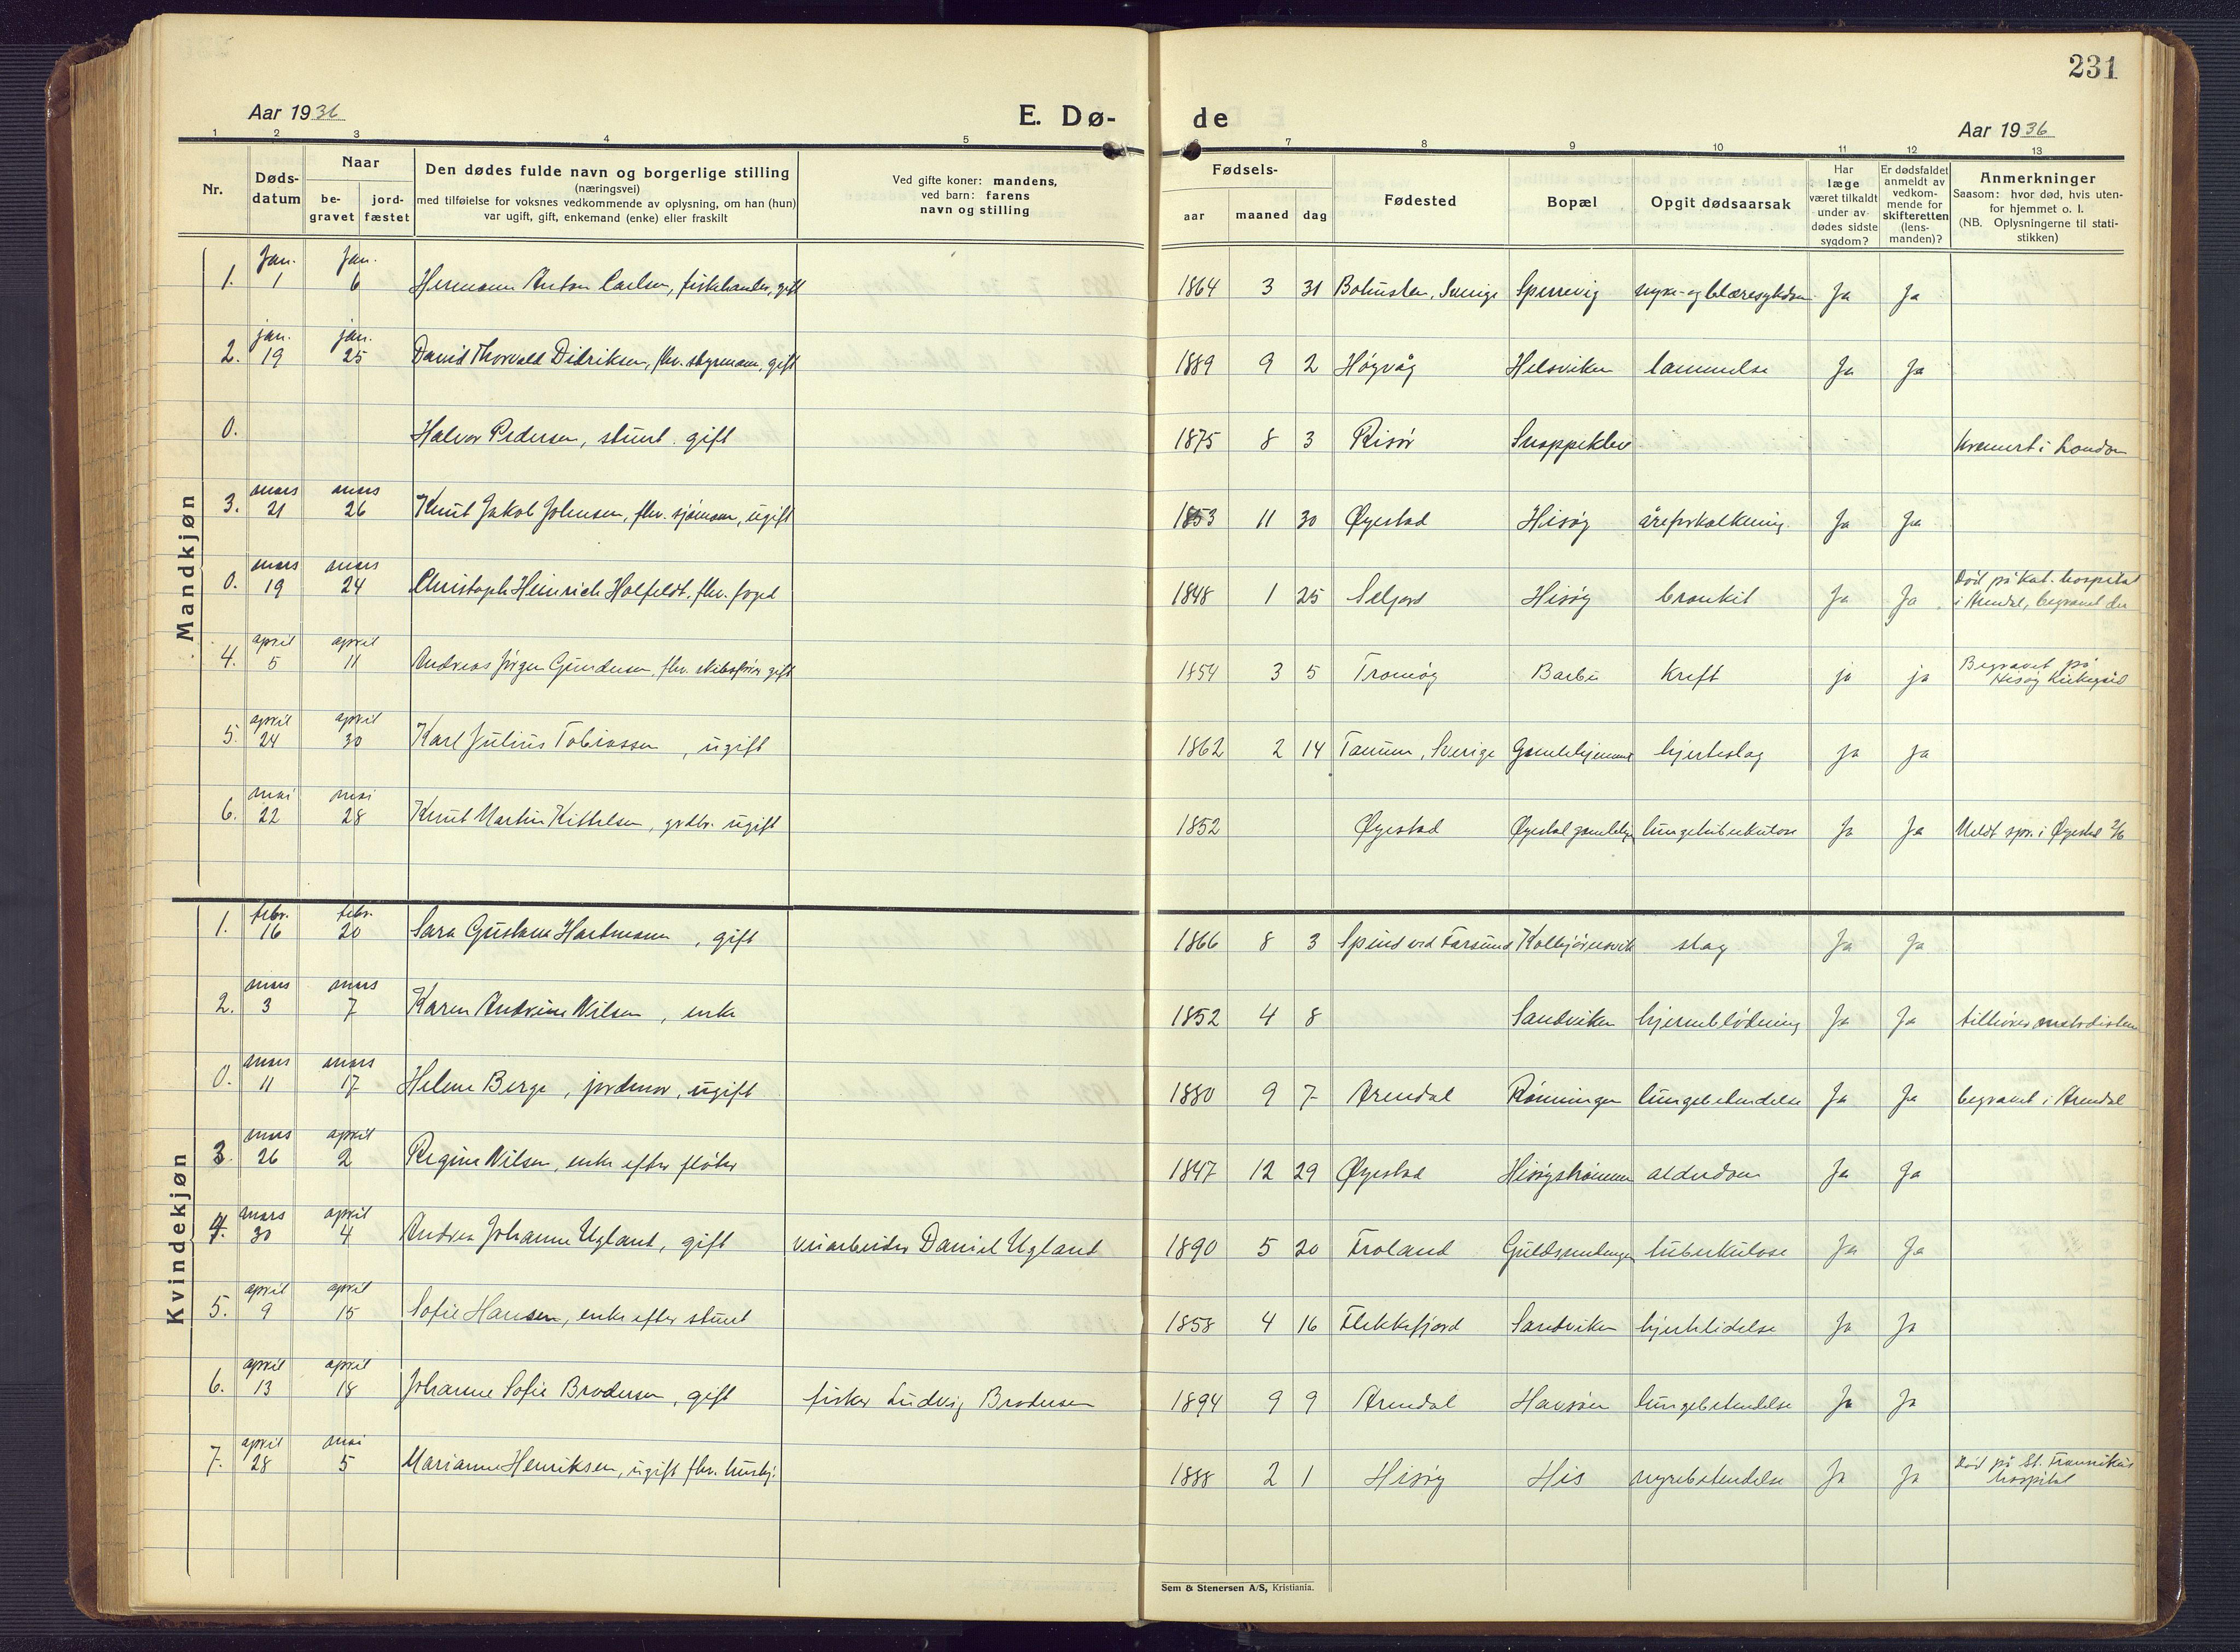 231
Aar 1936
E. Dø-
de
Aar 1936
1 2 3 4 5 7 8 9 10 11 12 13
Nr.
Døds-
datum
Naar
be-
gravet
jord-
fæstet
Den dødes fulde navn og borgerlige stilling
(næringsvei)
med tilføielse for voksnes vedkommende av oplysning, om han (hun)
var ugift, gift, enkemand (enke) eller fraskilt
Ved gifte koner: mandens,
ved barn: farens
navn og stilling
Fødsels-
aar maaned dag
Fødested
Bopæl
Opgit dødsaarsak
Har
læge
været tilkaldt
under av-
dødes sidste
sygdom?
Er dødsfaldet
anmeldt av
vedkom-
mende for
skifteretten
(lens-
manden)?
Anmerkninger
Saasom: hvor død, hvis uten-
for hjemmet o. l.
(NB. Oplysningerne til stati-
stikken)
Mandkjøn
Jan. Jan.
1. 1 6 Hermann Anton Carlsen, fiskehandler, gift 1864 3 31 Bohuslen, Sverige Sperrevig nyre- og blæresykdom Ja Ja
jan. jan.
2. 19 25 David Thorvald Didriksen, fhv. styrmann, gift 1889 9 2 Høgvåg Helsviken lammelse Ja Ja
0. Halvor Pedersen, stuert. gift 1875 8 3 Risør Snoppeklev kremert i London
mars mars
3. 21 26 Knut Jakob Johnsen, fhv. sjømann, ugift 1853 11 30 Øyestad Hisøy åreforkalkning. Ja Ja
mars mars
0. 19 24 Christoph Heinrich Holfeldt, fhv. foged 1848 1 25 Seljord Hisøy bronkit Ja Ja Død på Kat. hospital
i Arendal, begravet der
april april
4. 5 11 Andreas Jørgen Gundersen, fhv. skibsfører gift 1854 3 5 Tromøy Barbu Kreft ja ja Begravet på
Hisøy Kirkegård
april april
5. 24 30 Karl Julius Tobiassen, ugift 1862 2 14 Tanum, Sverige Gamlehjemmet hjerteslag Ja Ja
mai mai
6. 22 28 Knut Martin Kittelsen, grdbr. ugift 1852 Øyestad Øyestad gamlehj. lungetuberkulose Ja Ja Meldt spr. i Øyestad 2/6
Kvindekjøn
febr. febr.
1. 16 20 Sara Gustava Hartmann, gift 1866 8 3 Spind ved Farsund Kolbjørnsvik slag Ja Ja
mars mars
2. 3 7 Karen Andrine Nilsen, enke 1852 4 8 Sandviken hjerneblødning Ja Ja tilhører metodisten
mars mars
0. 11 17 Helene Berge, jordmor, ugift 1880 9 7 Arendal Rønningen lungebetendelse Ja Ja begravet i Arendal
mars april
3. 26 2 Regine Nilsen, enke efter fløter 1847 12 29 Øyestad Hisøystrømmen alderdom Ja Ja
mars april
4. 30 4 Andrea Johanne Ugland, gift veiarbeider Daniel Ugland 1890 5 20 Froland Guldsmedengen tuberkulose Ja Ja
april april
5. 9 15 Sofie Hansen, enke efter stuert 1858 4 16 Flekkefjord Sandviken hjertelidelse Ja Ja
april april
6. 13 18 Johanne Sofie Brodersen, gift fisker Ludvig Brodersen 1894 9 9 Arendal Havsøen lungebetendelse Ja Ja
april mai
7. 28 5 Marianne Henriksen, ugift fhv. hushj. 1888 2 1 Hisøy His nyrebetendelse Ja Ja Død på St. Franciskus
hospital
Sem & Stenersen A/S, Kristiania.